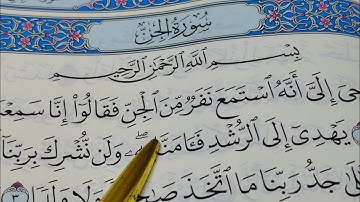 سُورَةُ الجِنِّ
بِسْمِ اللَّهِ الرَّحْمَٰنِ الرَّحِيمِ
إِلَىَّ أَنَّهُ ٱسْتَمَعَ نَفَرٌ مِّنَ ٱلْجِنِّ فَقَالُوٓا۟ إِنَّا سَمِعْنَا
يَهْدِىٓ إِلَى ٱلرُّشْدِ وَلَن نُّشْرِكَ بِرَبِّنَآ
جَدُّ رَبِّنَا مَا ٱتَّخَذَ وَلَا وَلَدًا
٣